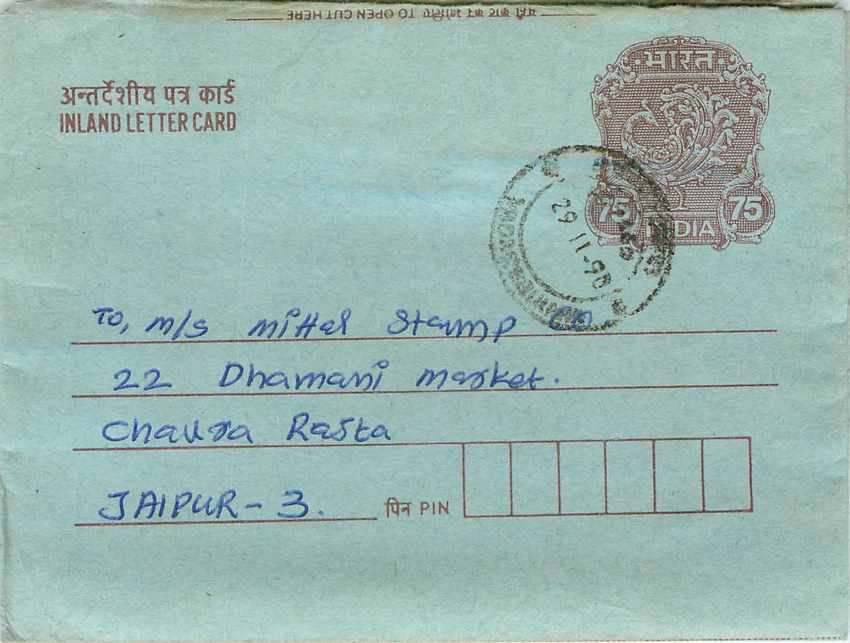 यहाँ काट कर खोलिए TO OPEN CUT HERE
अन्तर्देशीय पत्र कार्ड
INLAND LETTER CARD
भारत
75 75
INDIA
29 11-90
To, M/s Mittal Stamp Co
22 Dhamani market.
Chaura Rasta
JAIPUR - 3.
पिन PIN